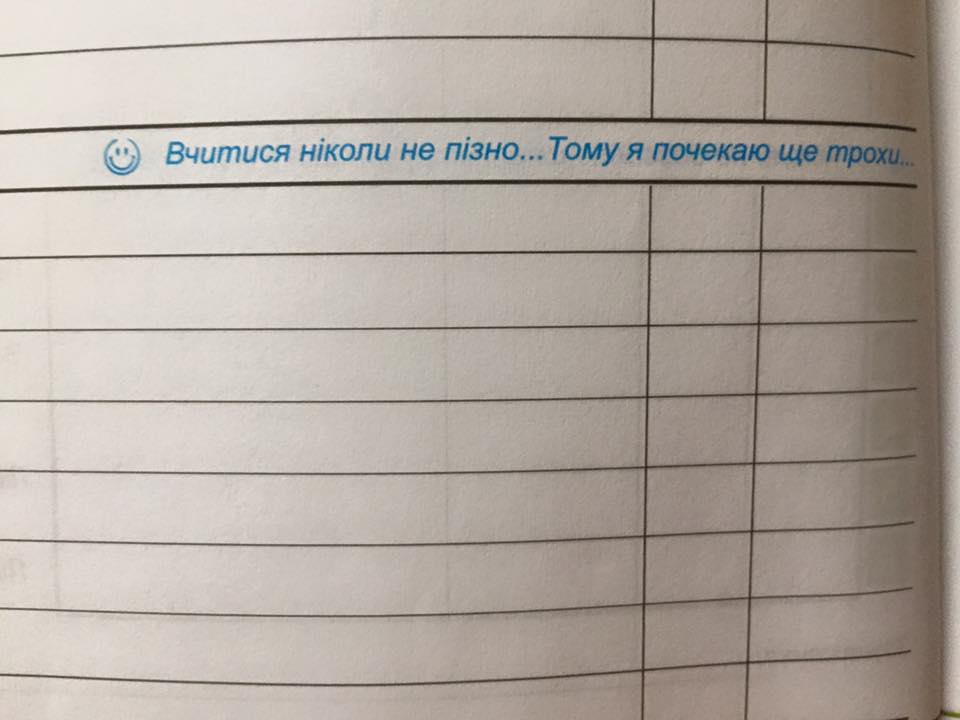 Вчитися ніколи не пізно...Тому я почекаю ще трохи...